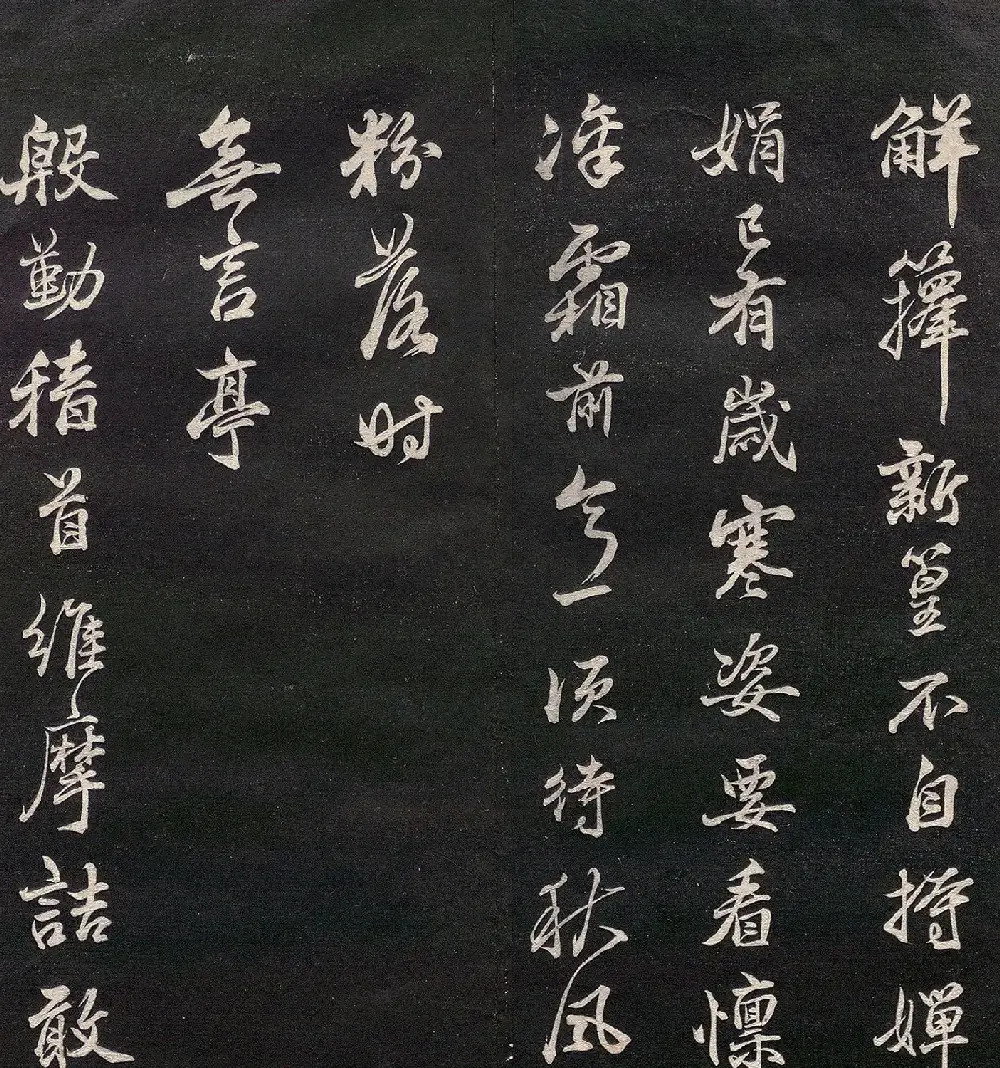 解籜新篁不自持嬋
娟已有歲寒姿要看懔
凜霜前意須待秋風
粉落時
無言亭
殷勤稽首維摩詰敢